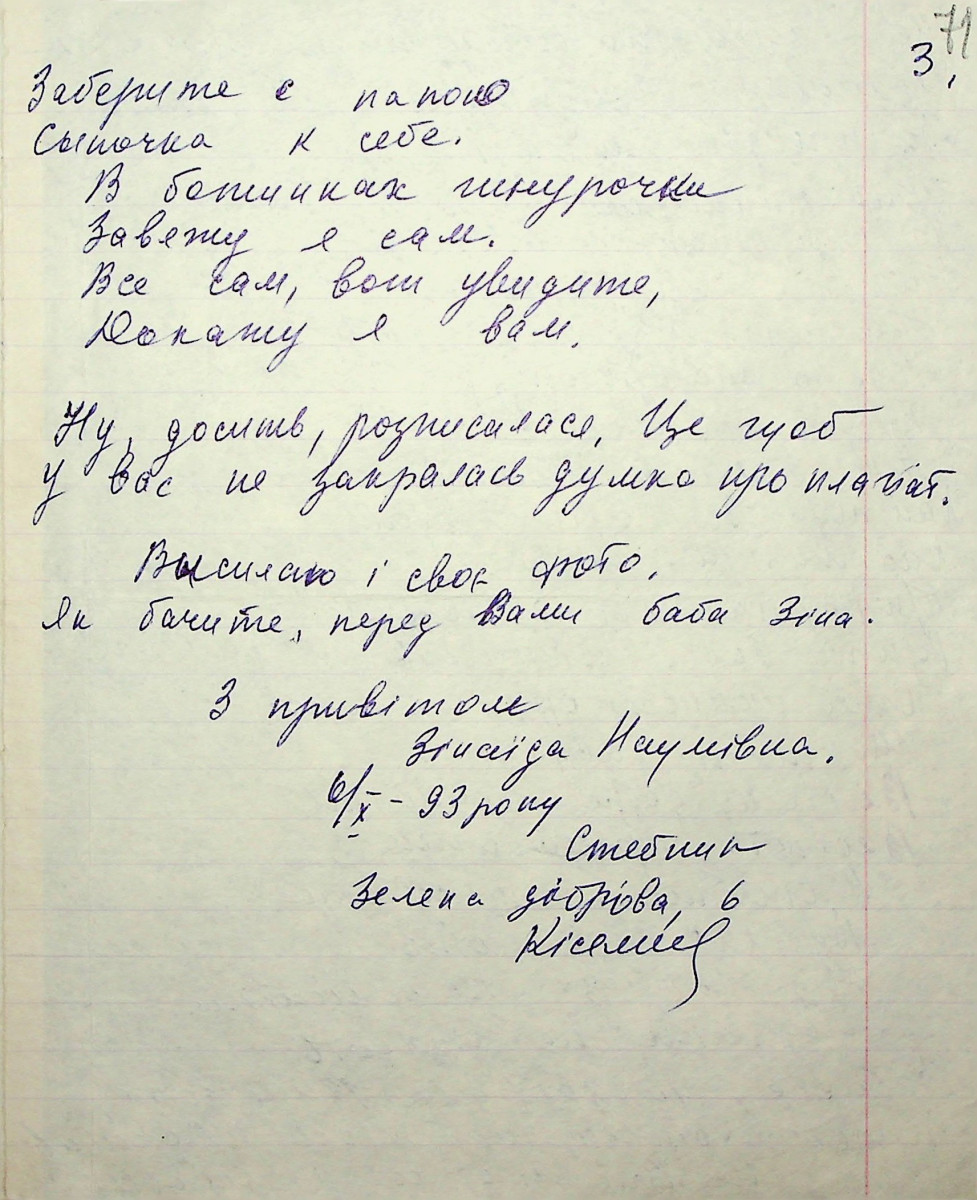 71
3.
Заберите с папою
Сыночка к себе.
В ботинках шнурочки
Завяжу я сам.
Все сам, вот увидите,
Докажу я вам.
Ну, досить, розписалася. Це щоб
у вас не закралась думка про плагіат.
Висилаю і своє фото.
Як бачите, перед Вами баба Зіна.
З привітом
Зінаїда Наумівна.
6/X - 93 року
Стебник
Зелена діброва, 6